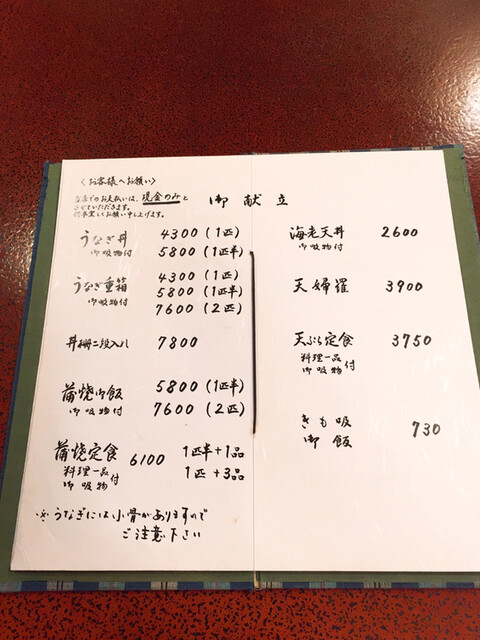 〈お客様へお願い〉
当店でのお支払いは、現金のみと
させていただきます。
何卒宜しくお願い申し上げます。
御献立
うなぎ丼 4300(1匹)
御吸物付 5800(1匹半)
うなぎ重箱 4300(1匹)
御吸物付 5800(1匹半)
7600(2匹)
丼 二段入り 7800
蒲焼御飯 5800(1匹半)
御吸物付 7600(2匹)
蒲焼定食 6100 1匹半+1品
料理一品付 1匹+3品
御吸物
※うなぎには小骨がありますので
ご注意下さい
海老天丼 2600
御吸物付
天婦羅 3900
天ぷら定食 3750
料理一品付
御吸物
きも吸 730
御飯